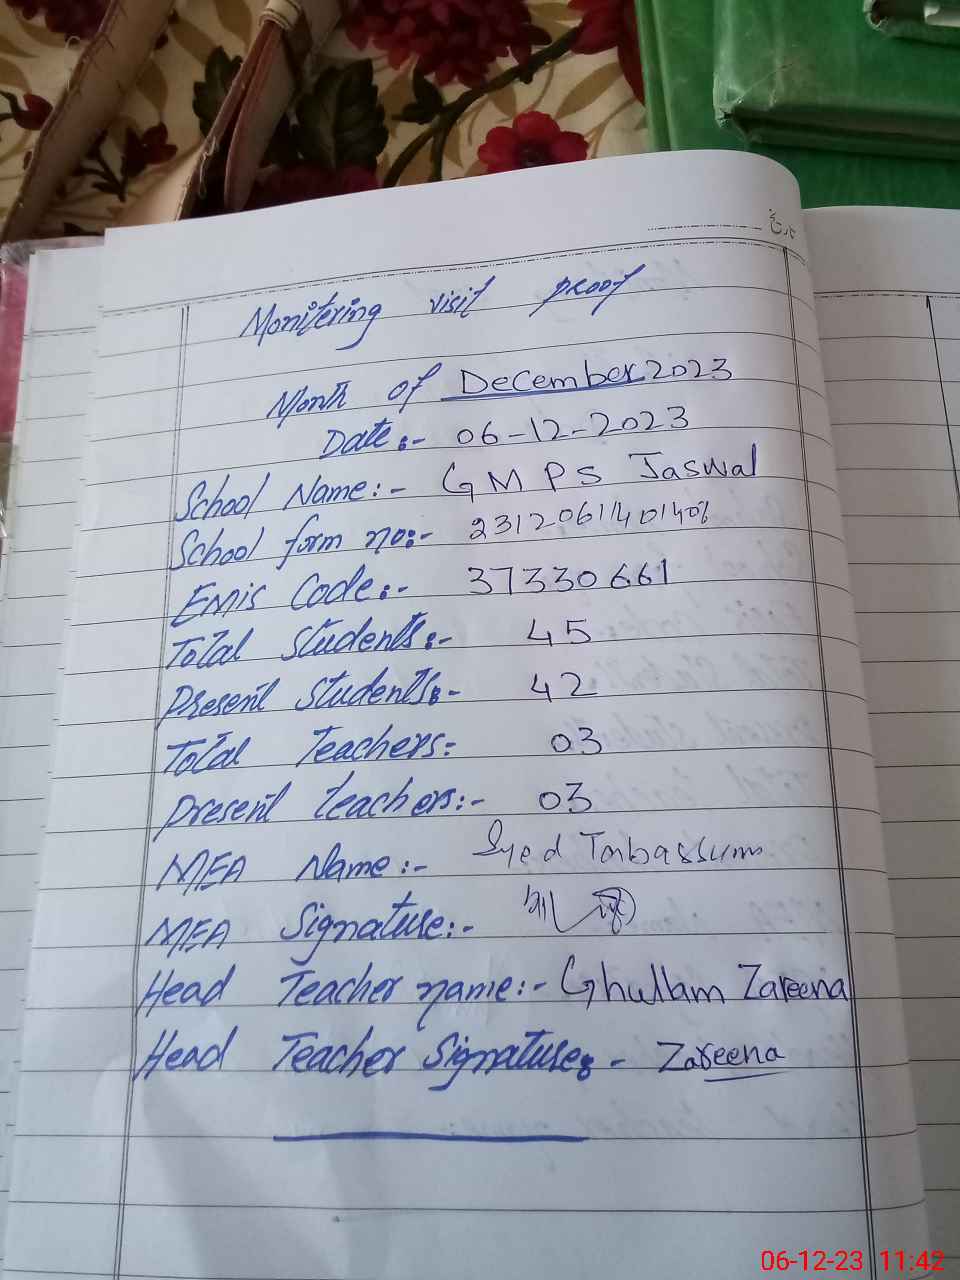 تاریخ
Monitering visit proof
Month of December 2023
Date:- 06-12-2023
School Name:- GMPS Jaswal
School form no:-
EMIS Code:- 37330661
Total students:- 45
Present students:- 42
Total Teachers:- 03
Present teachers:- 03
MEA Name:- Syed Tabassum
MEA Signature:-
Head Teacher name:- Ghullam Zareena
Head Teacher Signature:- Zareena
06-12-23 11:42